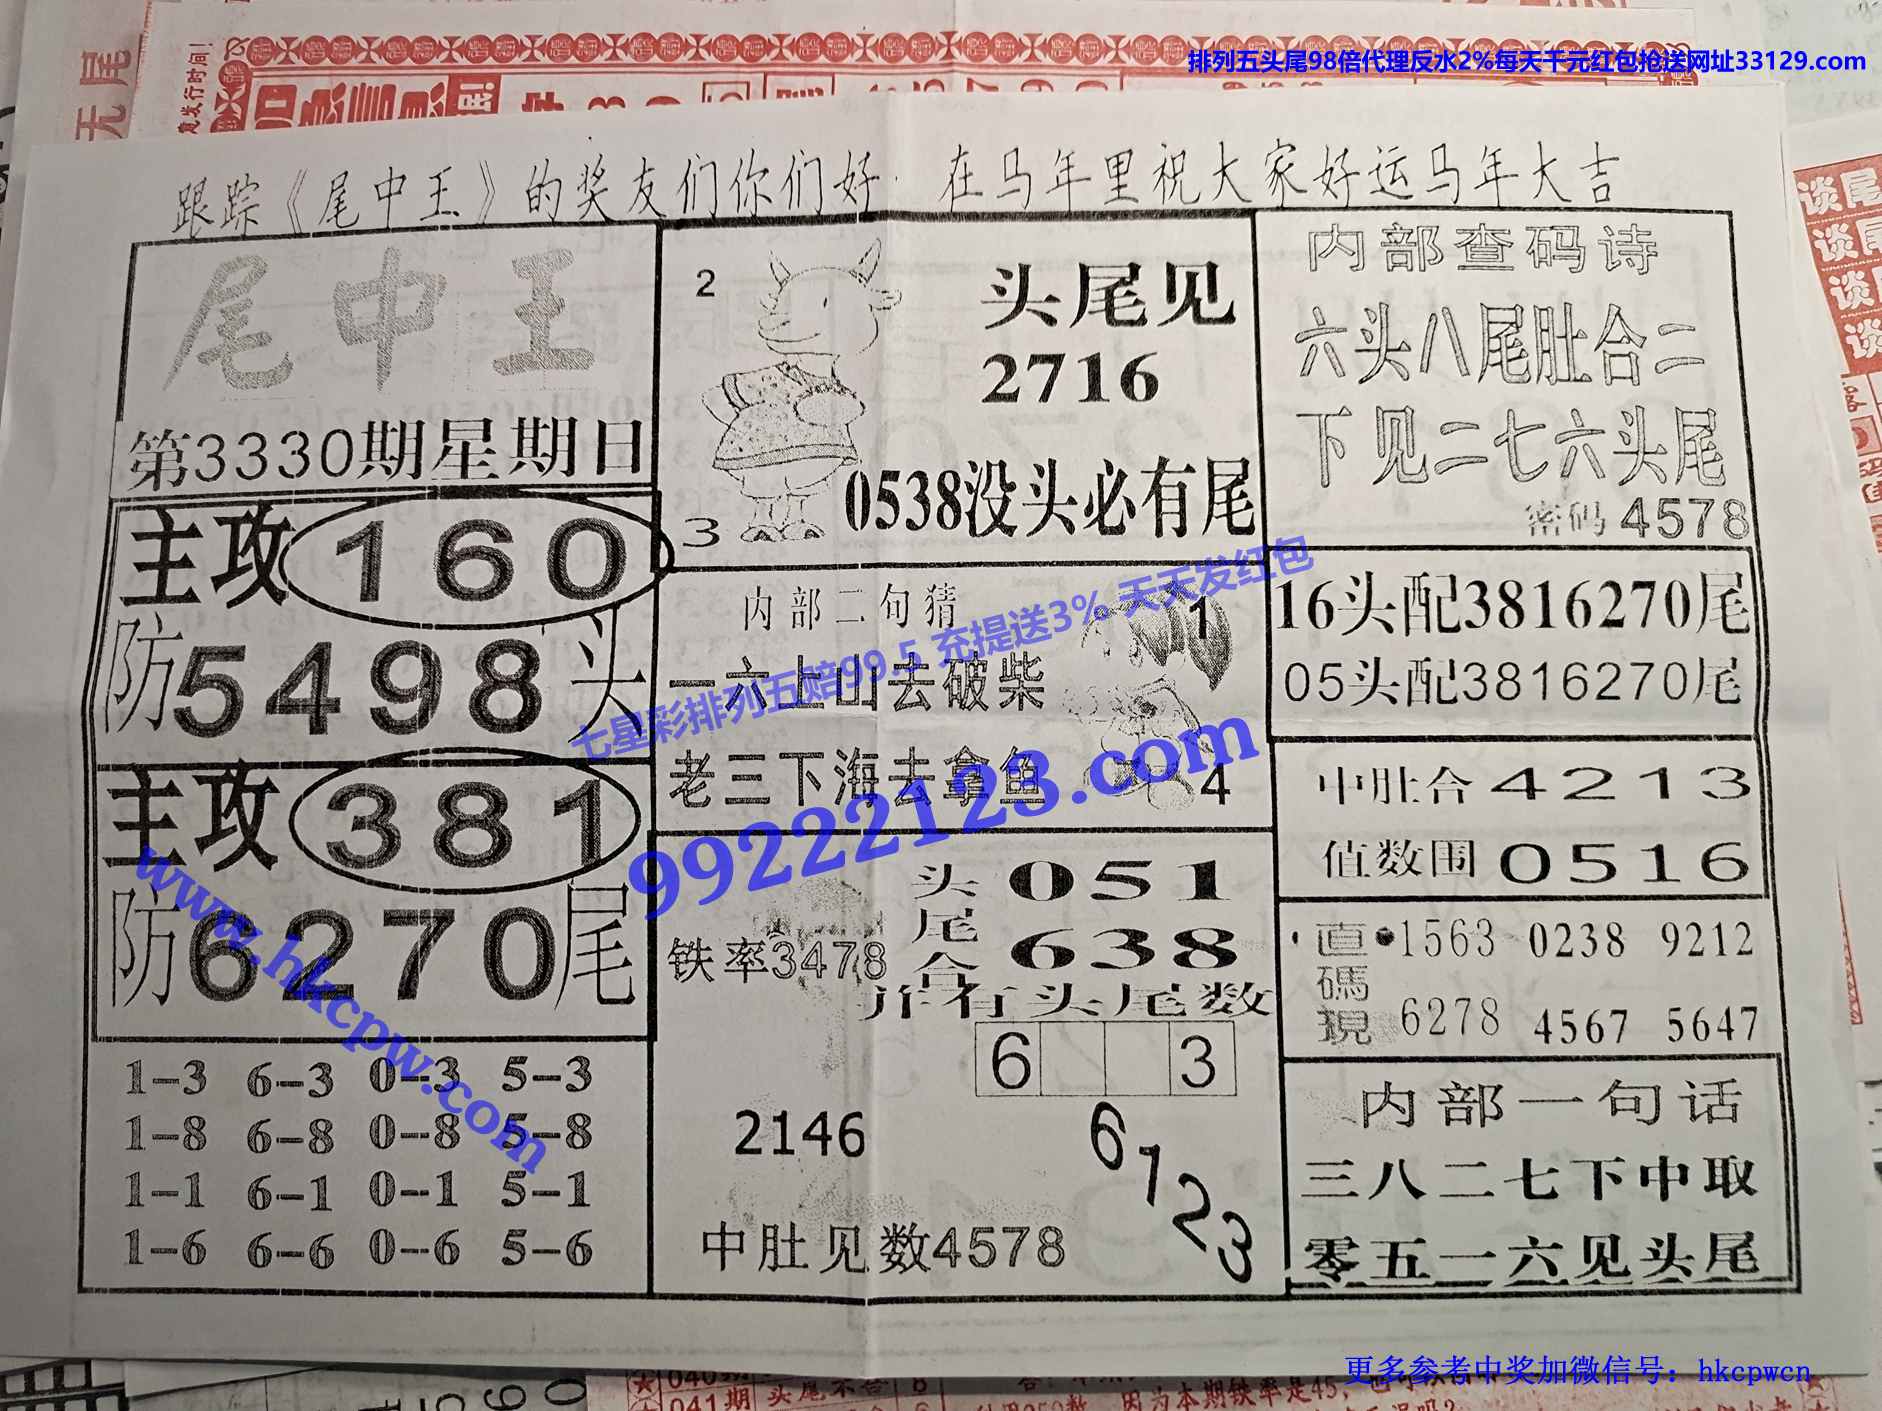 排列五头尾98倍代理反水2%每天千元红包抢送网址33129.com
无尾
谈尾
谈尾
谈
谈
跟踪《尾中王》的奖友们你们好 在马年里祝大家好运马年大吉
尾中王
第3330期星期日
主攻160
防5498头
主攻381
防6270尾
1-3 6-3 0-3 5-3
1-8 6-8 0-8 5-8
1-1 6-1 0-1 5-1
1-6 6-6 0-6 5-6
2
3
头尾见
2716
0538没头必有尾
内部二句猜
一六上山去破柴
老三下海去拿鱼
1
4
铁率3478
头尾合
051
638
并有头尾数
6 3
2146
6123
中肚见数4578
内部查码诗
六头八尾肚合二
下见二七六头尾
密码4578
16头配3816270尾
05头配3816270尾
中肚合4213
值数围0516
直碼現
1563 0238 9212
6278 4567 5647
内部一句话
三八二七下中取
零五一六见头尾
七星彩排列五赔99.5 充提送3% 天天发红包
99222123.com
www.hkcpw.com
更多参考中奖加微信号：hkcpwcn
040期
041期
因为本期铁率是45，